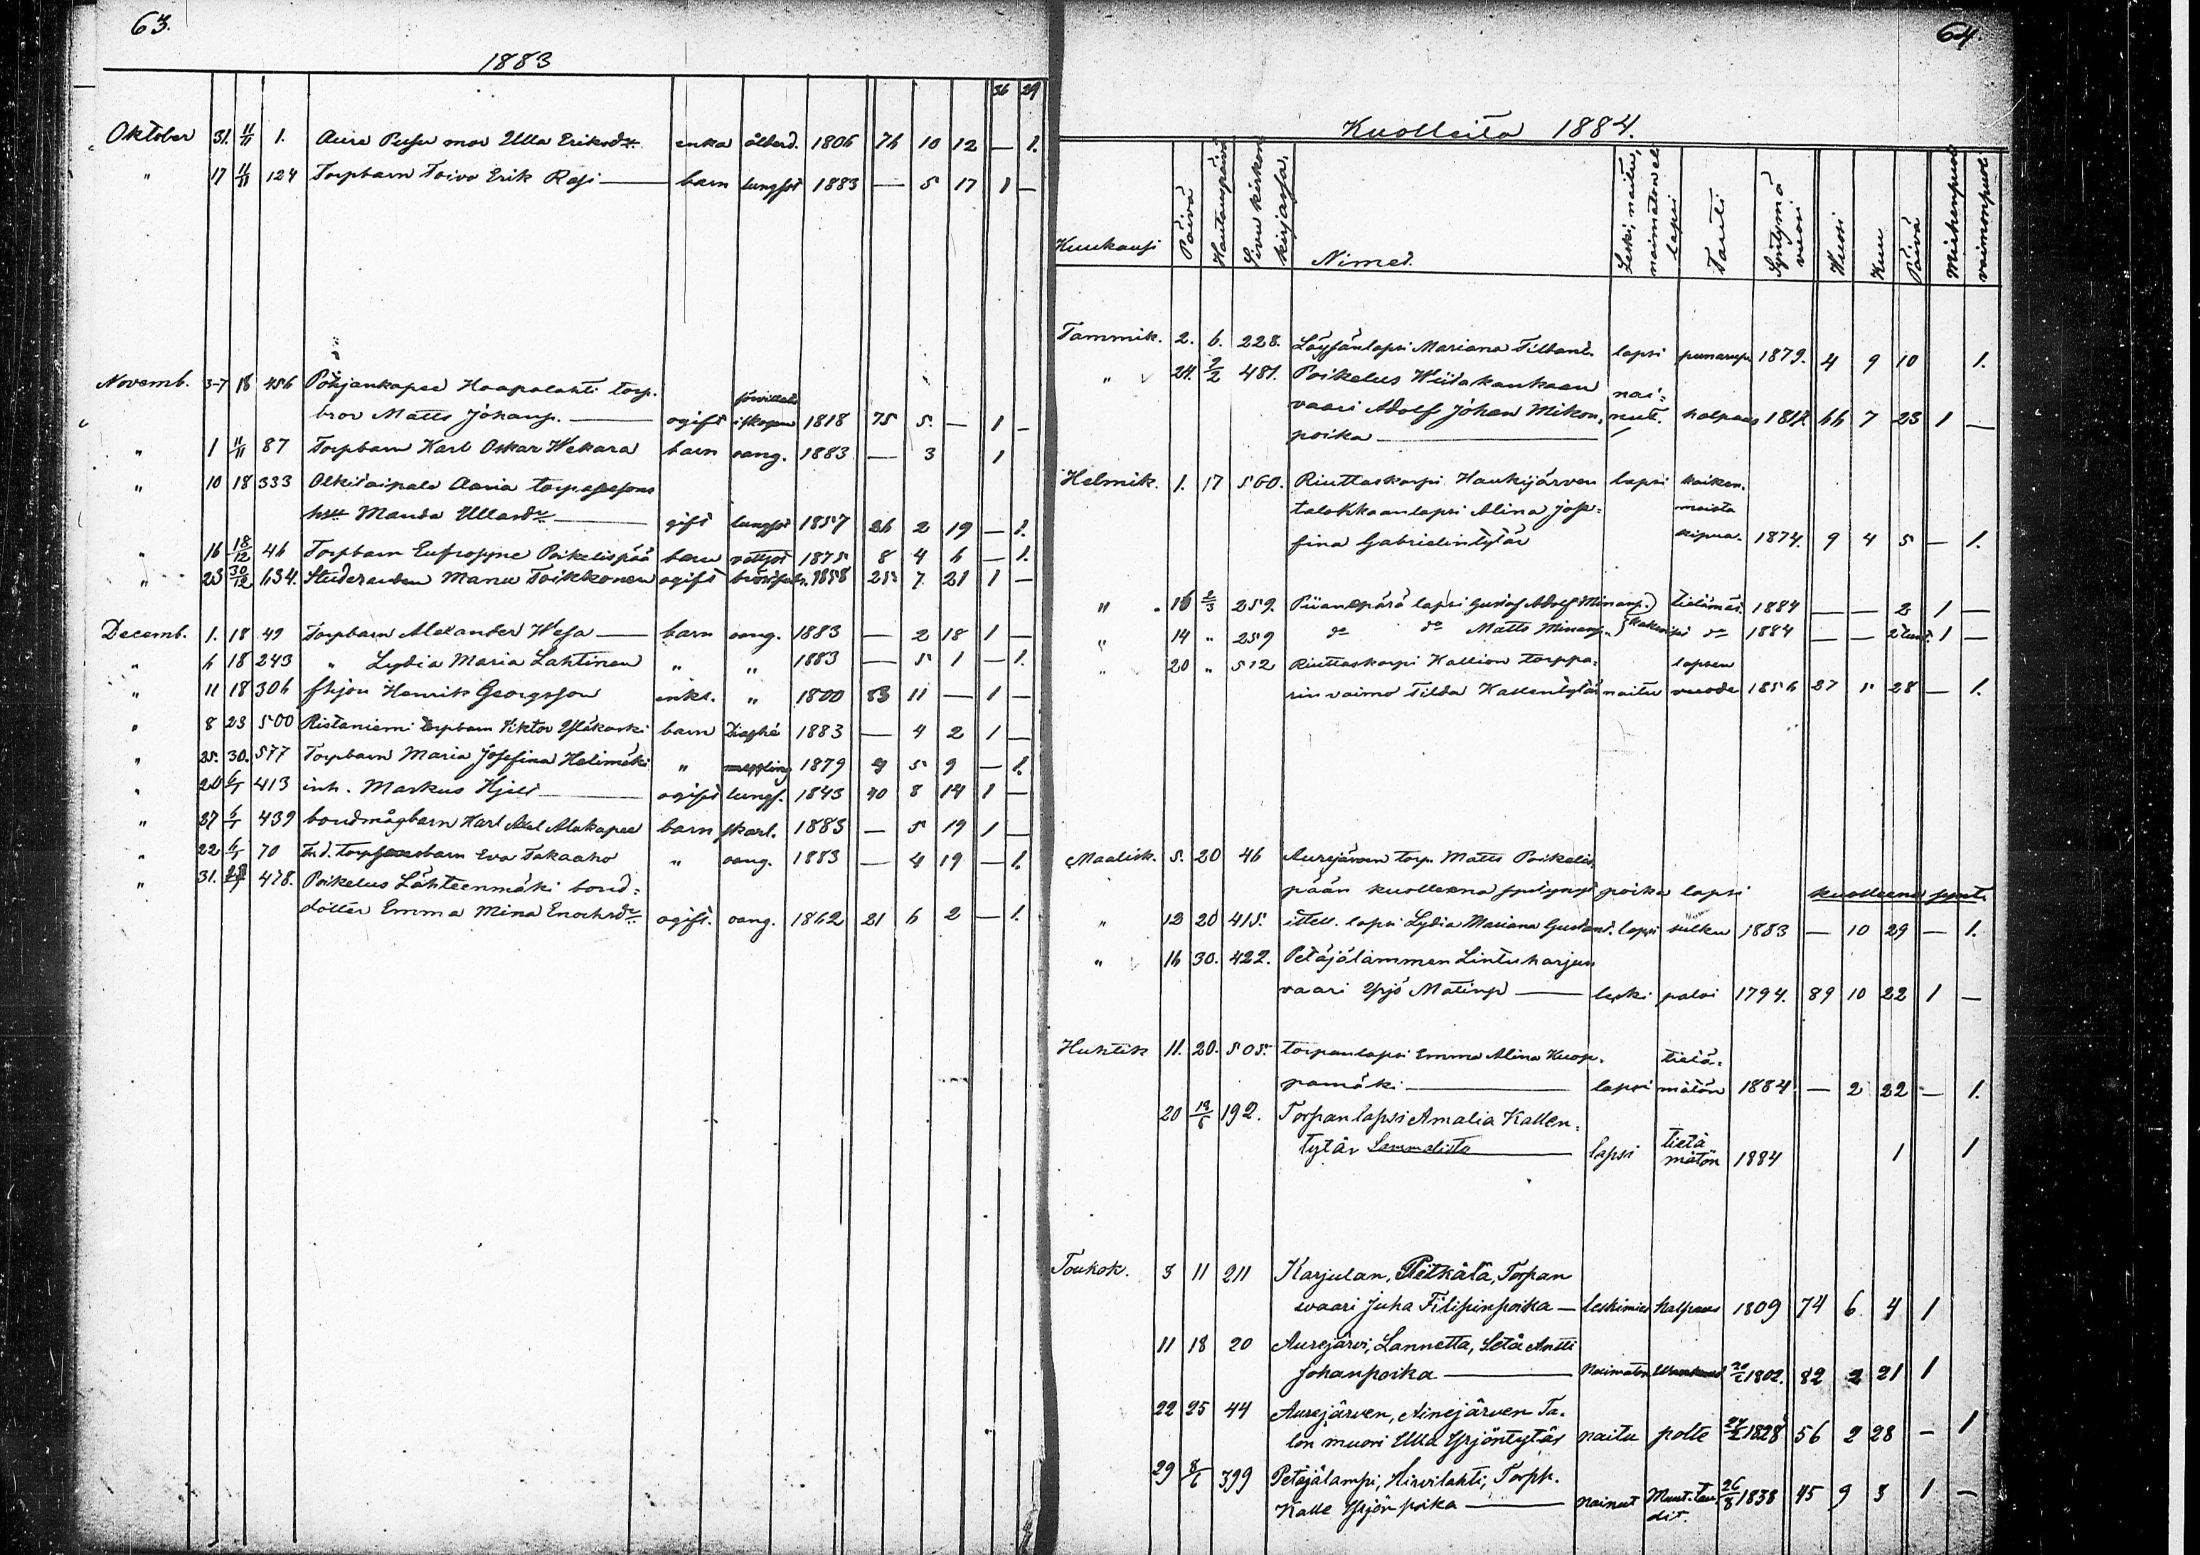 63.
1883
36 29
Oktober 31. 11/11 1. Aure Pusu mor Ulla Eriksdr enka ålderd. 1806 76 10 12 — 1.
" 17 11/11 124 Torpbarn Toivo Erik Rasi — barn lungsot 1883 — 5 17 1 —
Novemb. 3-7 18 456 Pohjankapee Haapalahti torp.
bror Matts Johans. — ogift i skogen 1818 75 5 — 1 —
" 1 11/11 87 Torpbarn Karl Oskar Wekara barn oang. 1883 — 3 1
" 10 18 333 Olkitaipale Aaria
hru Manda — gift lungsot 1857 26 2 19 — 1.
" 16 18/12 46 Torpbarn Eufrosyne Poikelispää barn 1875 8 4 6 — 1.
" 23 30/12 634. Studeranden Manu Toikkonen ogift 1858 25 7 21 1 —
Decemb. 1. 18 49 Torpbarn Alexander Wesa — barn oang. 1883 — 2 18 1 —
" 6 18 243 " Lydia Maria Lahtinen " " 1883 — 5 1 — 1.
" 11 18 306 Henrik Georgsson enkl. " 1800 83 11 — 1 —
" 8 23 500 Ristaniemi torpbarn Viktor Yläkoski barn 1883 — 4 2 1 —
" 25. 30. 577 Torpbarn Maria Josefina Helimäki " messling 1879 4 5 9 — 1.
" 20 6/1 413 inh. Markus — ogift lungs. 1843 40 8 14 1 —
" 27 6/1 439 bondmågbarn Karl Axel Alakapee barn skarl. 1883 — 5 19 1 —
" 22 6/1 70 barn Eva Takaaho " oang. 1883 — 4 19 — 1.
" 31. 478. Poikelus Lähteenmäki bond=
dotter Emma Mina Enochsdr ogift. oang. 1862 21 6 2 — 1.
64.
Kuolleita 1884.
Kuukausi Päivä Hautauspäivä Sivu kirkon kirjassa. Nimet. Leski, naitu, naimaton el. lapsi Tauti Syntymä vuosi Vuosi Kuu Päivä Miehenpuoli vaimonpuoli
Tammik. 2. 6. 228. Löysänlapsi Mariana lapsi 1879. 4 9 10 1.
" 24. 2/2 481. Poikelus Wiidakankaan nai=
vaari Adolf Johan Mikon, nut. halpaus 1817. 66 7 23 1 —
poika —
Helmik. 1. 17 560. Riuttaskorpi Haukijärven lapsi
talokkaanlapsi Alina Jose=
fina Gabrielintytär kipua. 1874. 9 4 5 — 1.
" 16 2/3 259. lapsi Gustaf Adolf tietämät. 1884 — — 2 1 —
" 14 " 259 do do Matts do 1884 — — 1 —
" 20 " 512 Riuttaskorpi Kallion torppa= lapsen
rin vaimo Tilda Kallentytär naitu vuode 1856 27 5 28 — 1.
Maalisk. 5. 20 46 Aurejärven torp. Matts Poikelis,
pään kuolleena syntynyt poika lapsi kuolleena synt.
" 12 20 415. ittell. lapsi Lydia Mariana Gustavt. lapsi sulku 1883 — 10 29 — 1.
" 16 30. 422. Petäjälammen Lintuharjun
vaari Yrjö Matinp — leski polvi 1794. 89 10 22 1 —
Huhtik 11. 20. 505. torpanlapsi Emma Alina Kuop= tietä=
pamäki — lapsi mätön 1884 — 2 22 — 1.
20 192. Torpanlapsi Amalia Kallen=
tytär Sammalisto — lapsi tietä mätön 1884 1 1
Toukok. 3 11 211 Karjulan, Pitkälä, Torpan
waari Juha Filipinpoika — leskimies halpaus 1809 74 6 4 1
11 18 20 Aurejärvi, Lannetta, Setä Antti
Johanpoika — Naimaton 1802. 82 2 21 1
22 25 44 Aurejärven, Ainejärven Ta=
lon muori Ulla Yrjöntytär naitu polte 1828 56 2 28 — 1
29 8/6 399 Petäjälampi, Hirvilahti, Torpp.
Kalle Yrjönpoika — nainut Muut. tau dit. 26/8 1838 45 9 3 1 —